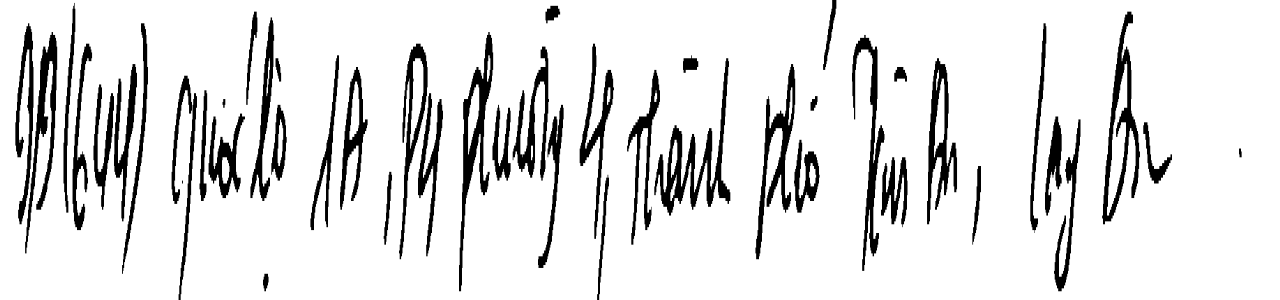 quốc lộ 1A, P4 phường 4, thành phố Tân An, Long An